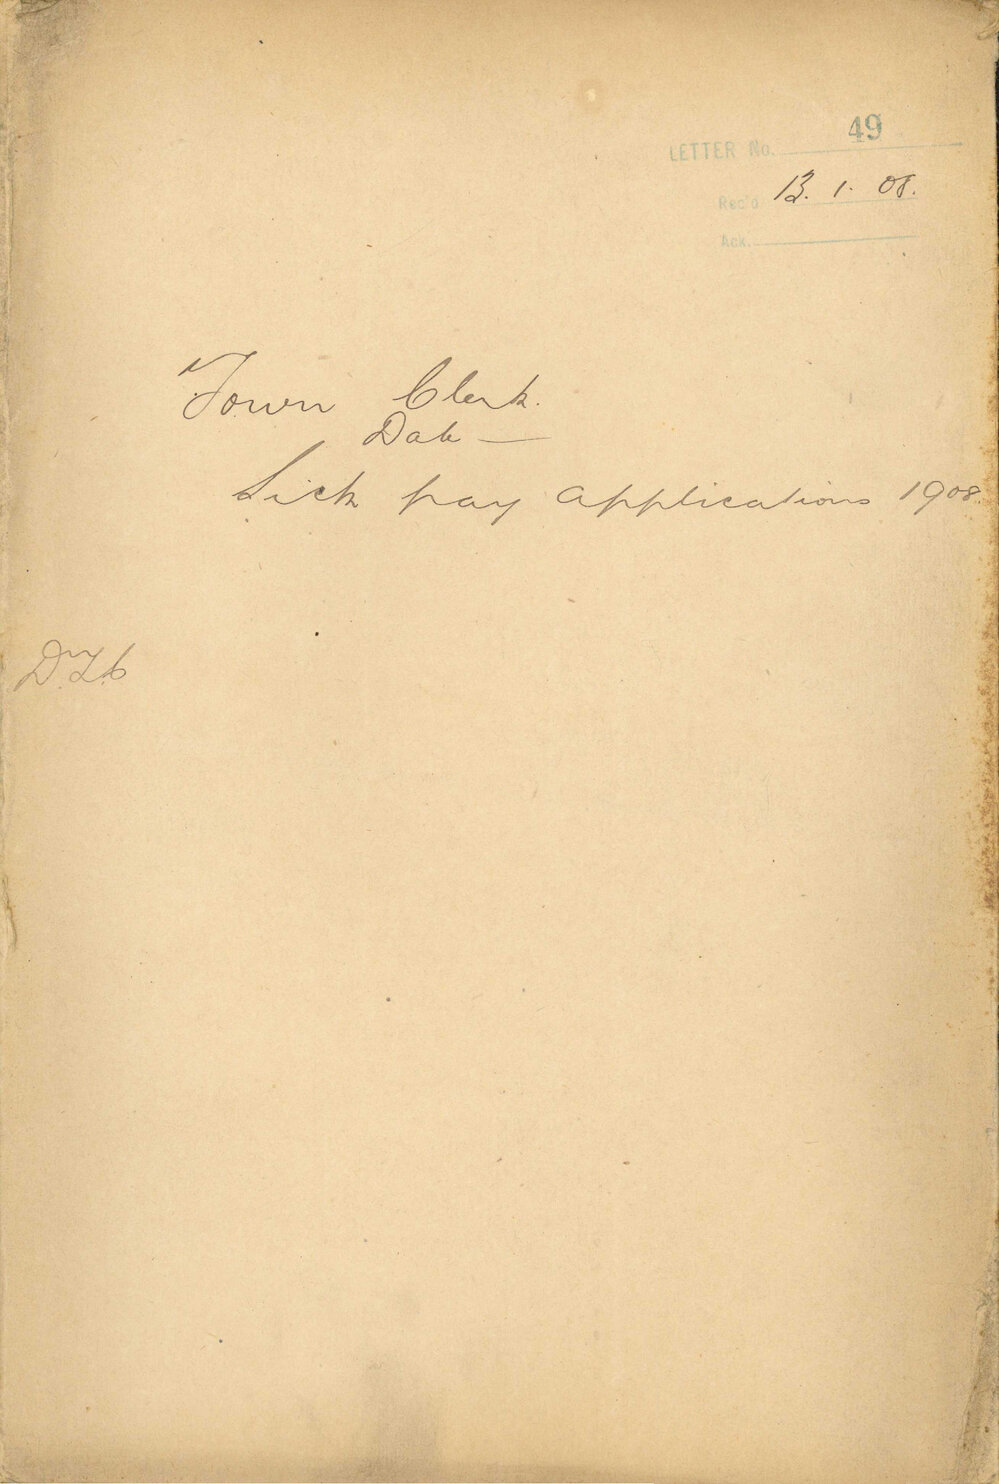 LETTER No. 49
Rec'd 13. 1. 08.
Ack.
Town Clerk.
Date —
Sick pay applications 1908.